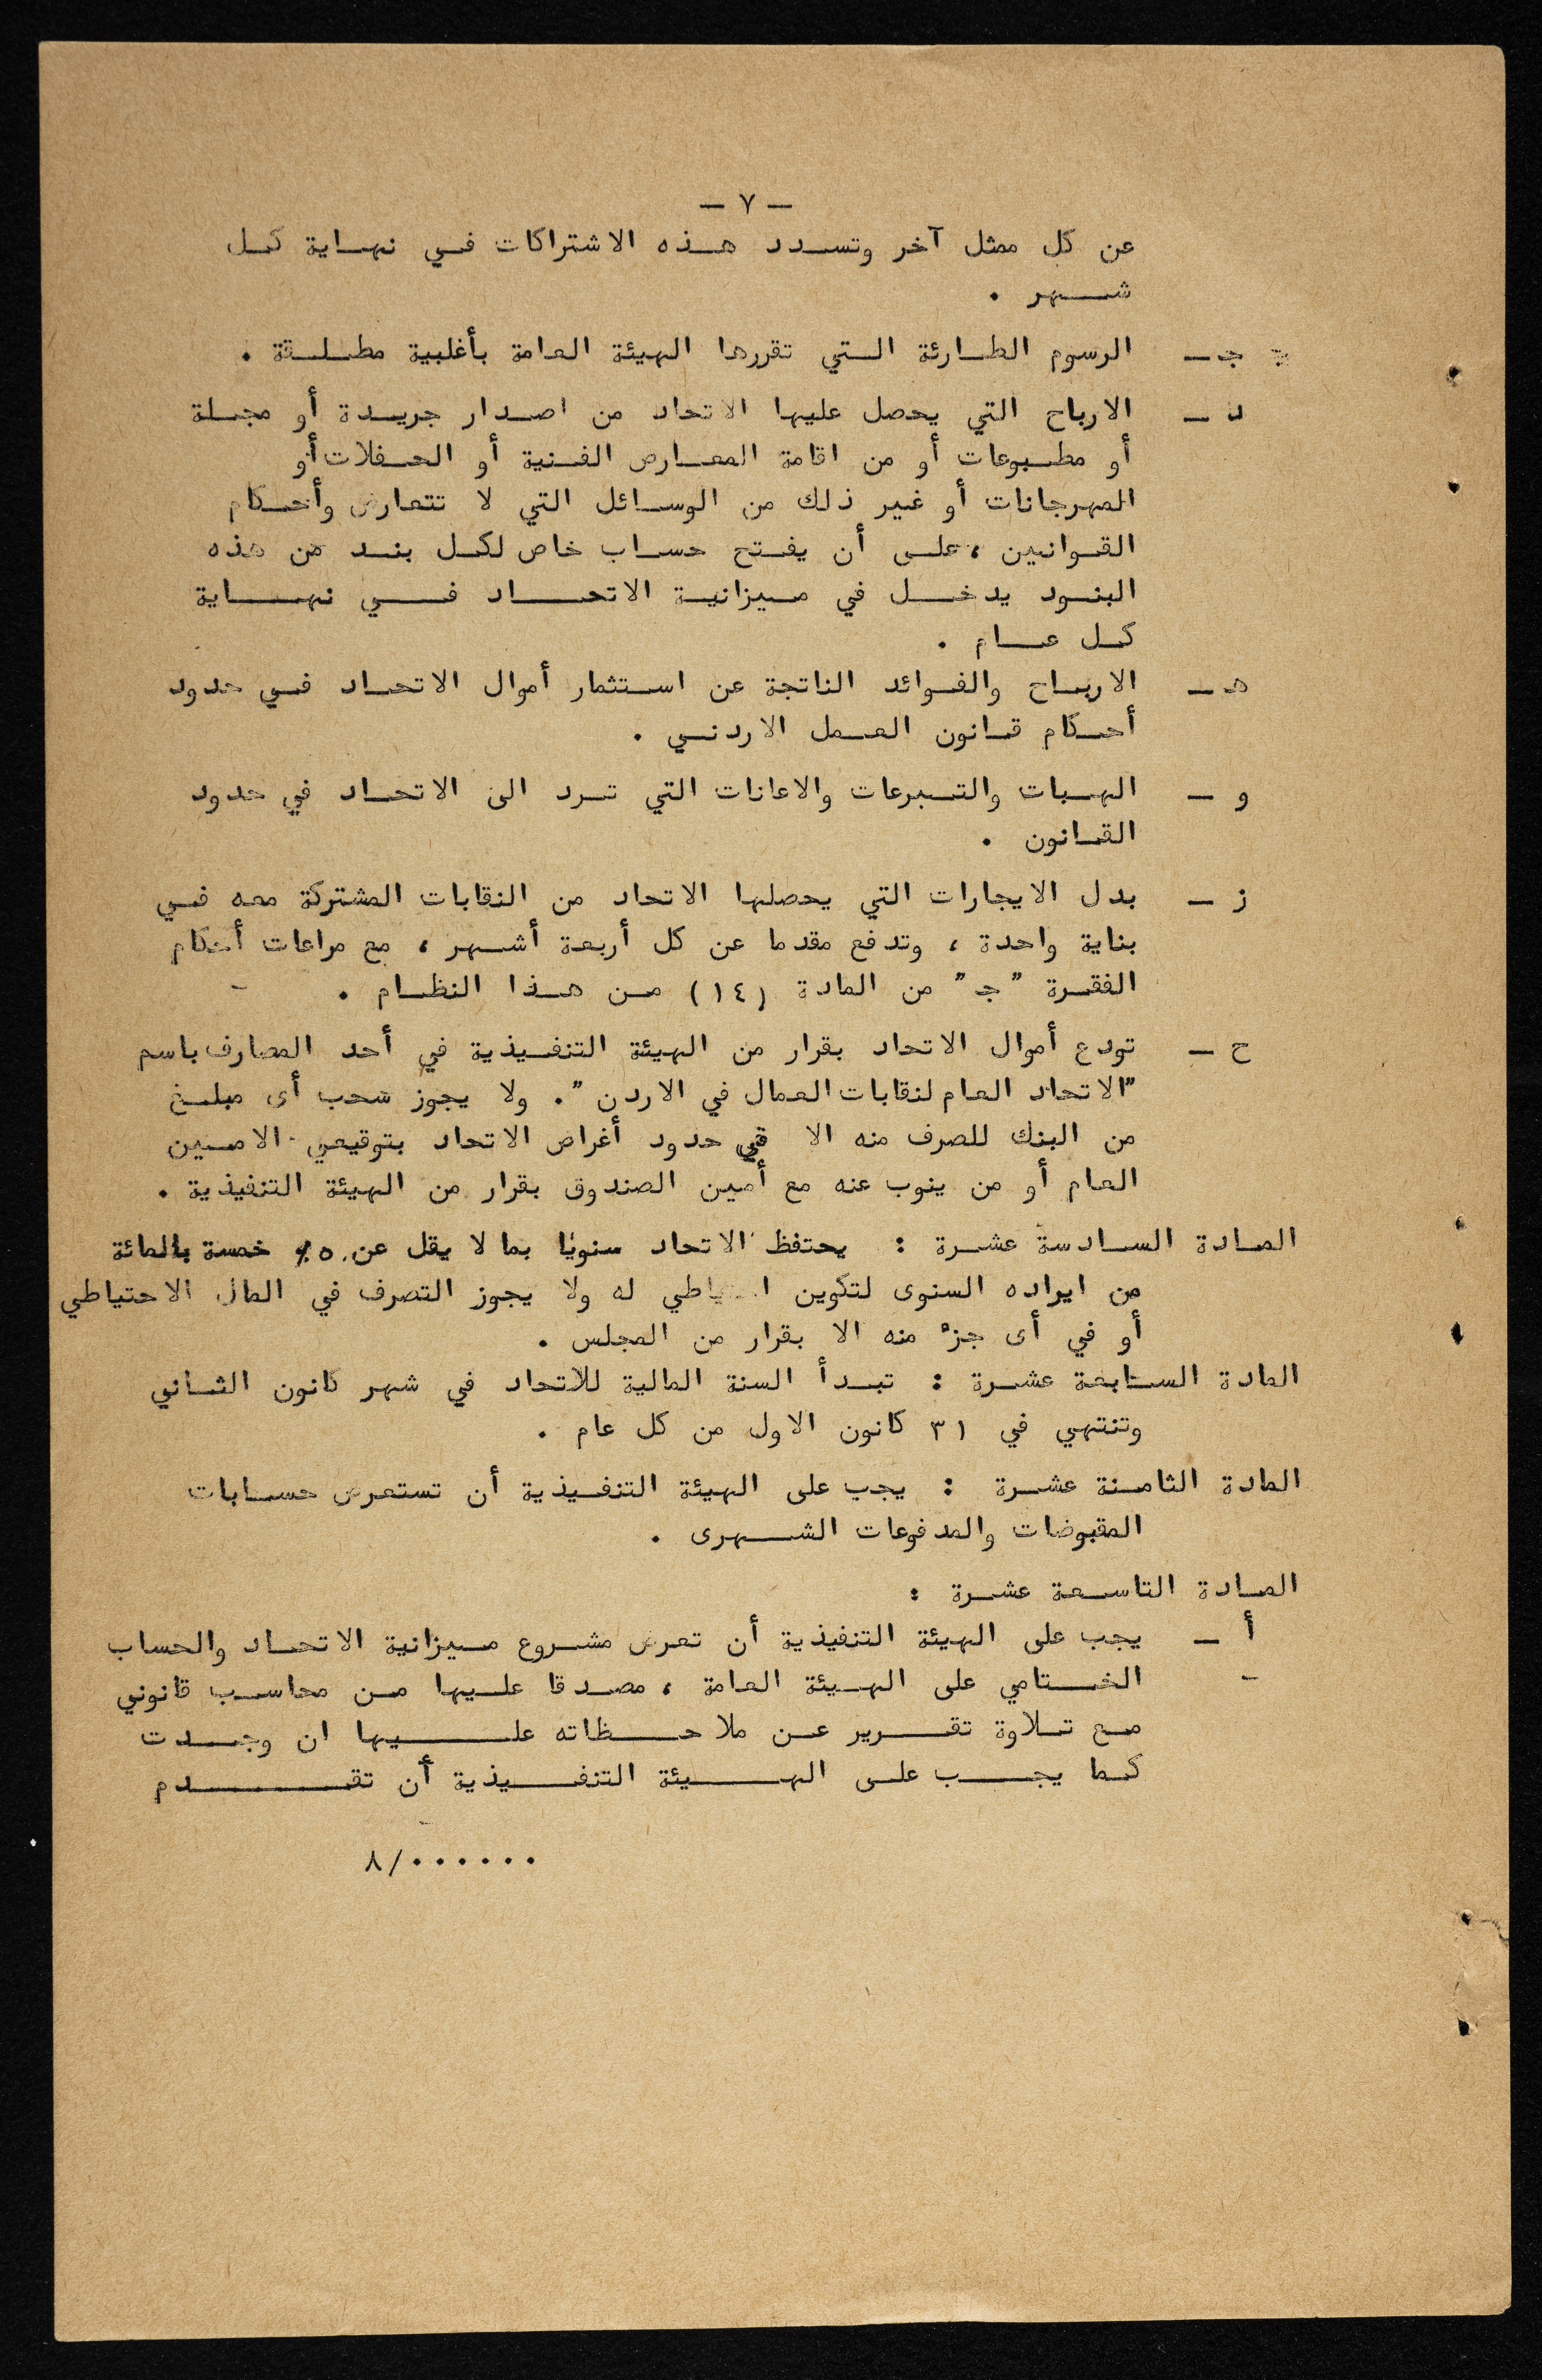 — ٧ —
عن كل ممثل آخر وتسدد هذه الاشتراكات في نهاية كل
شهر .
جـ — الرسوم الطارئة التي تقررها الهيئة العامة بأغلبية مطلقة .
د — الارباح التي يحصل عليها الاتحاد من اصدار جريدة أو مجلة
أو مطبوعات أو من اقامة المعارض الفنية أو الحفلات أو
المهرجانات أو غير ذلك من الوسائل التي لا تتعارض وأحكام
القوانين ، على أن يفتح حساب خاص لكل بند من هذه
البنود يدخل في ميزانية الاتحاد في نهاية
كل عام .
هـ — الارباح والفوائد الناتجة عن استثمار أموال الاتحاد في حدود
أحكام قانون العمل الاردني .
و — الهبات والتبرعات والاعانات التي ترد الى الاتحاد في حدود
القانون .
ز — بدل الايجارات التي يحصلها الاتحاد من النقابات المشتركة معه في
بناية واحدة ، وتدفع مقدما عن كل أربعة أشهر ، مع مراعات أحكام
الفقرة "جـ" من المادة (١٤) من هذا النظام .
ح — تودع أموال الاتحاد بقرار من الهيئة التنفيذية في أحد المصارف باسم
"الاتحاد العام لنقابات العمال في الاردن" . ولا يجوز سحب أى مبلغ
من البنك للصرف منه الا في حدود أغراض الاتحاد بتوقيعي الامين
العام أو من ينوب عنه مع أمين الصندوق بقرار من الهيئة التنفيذية .
المادة السادسة عشرة : يحتفظ الاتحاد سنويا بما لا يقل عن ٥٪ خمسة بالمائة
من ايراده السنوى لتكوين احتياطي له ولا يجوز التصرف في المال الاحتياطي
أو في أى جزء منه الا بقرار من المجلس .
المادة السابعة عشرة : تبدأ السنة المالية للاتحاد في شهر كانون الثاني
وتنتهي في ٣١ كانون الاول من كل عام .
المادة الثامنة عشرة : يجب على الهيئة التنفيذية أن تستعرض حسابات
المقبوضات والمدفوعات الشهرى .
المادة التاسعة عشرة :
أ — يجب على الهيئة التنفيذية أن تعرض مشروع ميزانية الاتحاد والحساب
الختامي على الهيئة العامة ، مصدقا عليها من محاسب قانوني
مع تلاوة تقرير عن ملاحظاته عليها ان وجدت
كما يجب على الهيئة التنفيذية أن تقدم
٨/٠٠٠٠٠٠